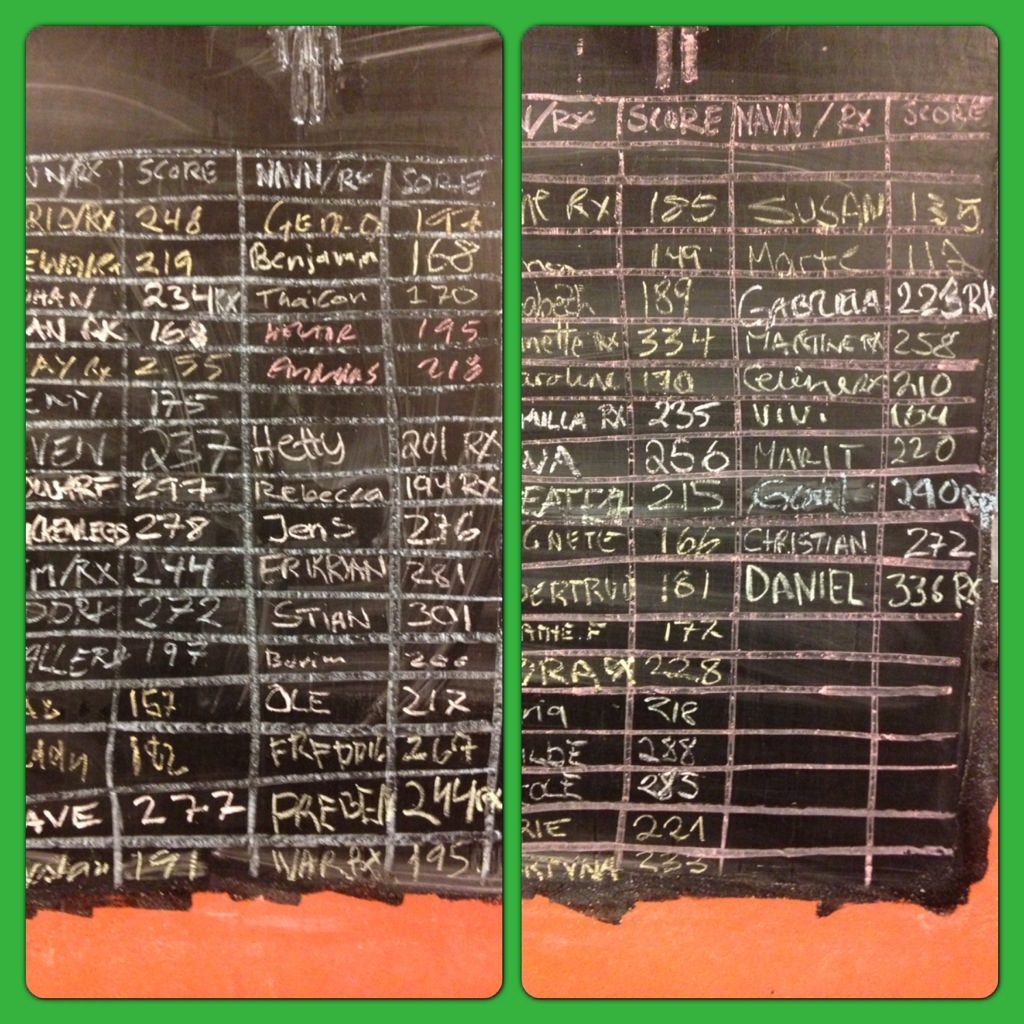 N/RX SCORE NAVN/RX SCORE
RID/RX 248 GEIR.O
EWAN RX 219 Benjamin 168
HAN 234RX Thaicon 170
AN RX 168 195
AY RX 255 Andreas 213
ENTY 175
VEN 237 Hetty 201 RX
DWARF 297 Rebecca 194 RX
CKENLEGS 278 Jens 276
M/RX 244 ERIKRYAN 281
272 STIAN 301
ALLERX 197 Burim
157 OLE 217
ddy 182 FREDDIE 267
AVE 277 PREBEN 244RX
191 IVAR RX 195
V/RX SCORE NAVN / RX SCORE
NE RX 185 SUSAN 135
149 Marte 112
abeth 189 GABRIELA 223RX
nette RX 334 MARTINE RX 258
aroline 170 Celine RX 210
AILLA RX 235 VIVI 164
NA 256 MARIT 220
EATE 215 290RX
GNETE 166 CHRISTIAN 272
ERTRUD 181 DANIEL 336 RX
ATHE.F 177
228
ria 218
LDE 288
OLE 285
RIE 221
RTYNA 233